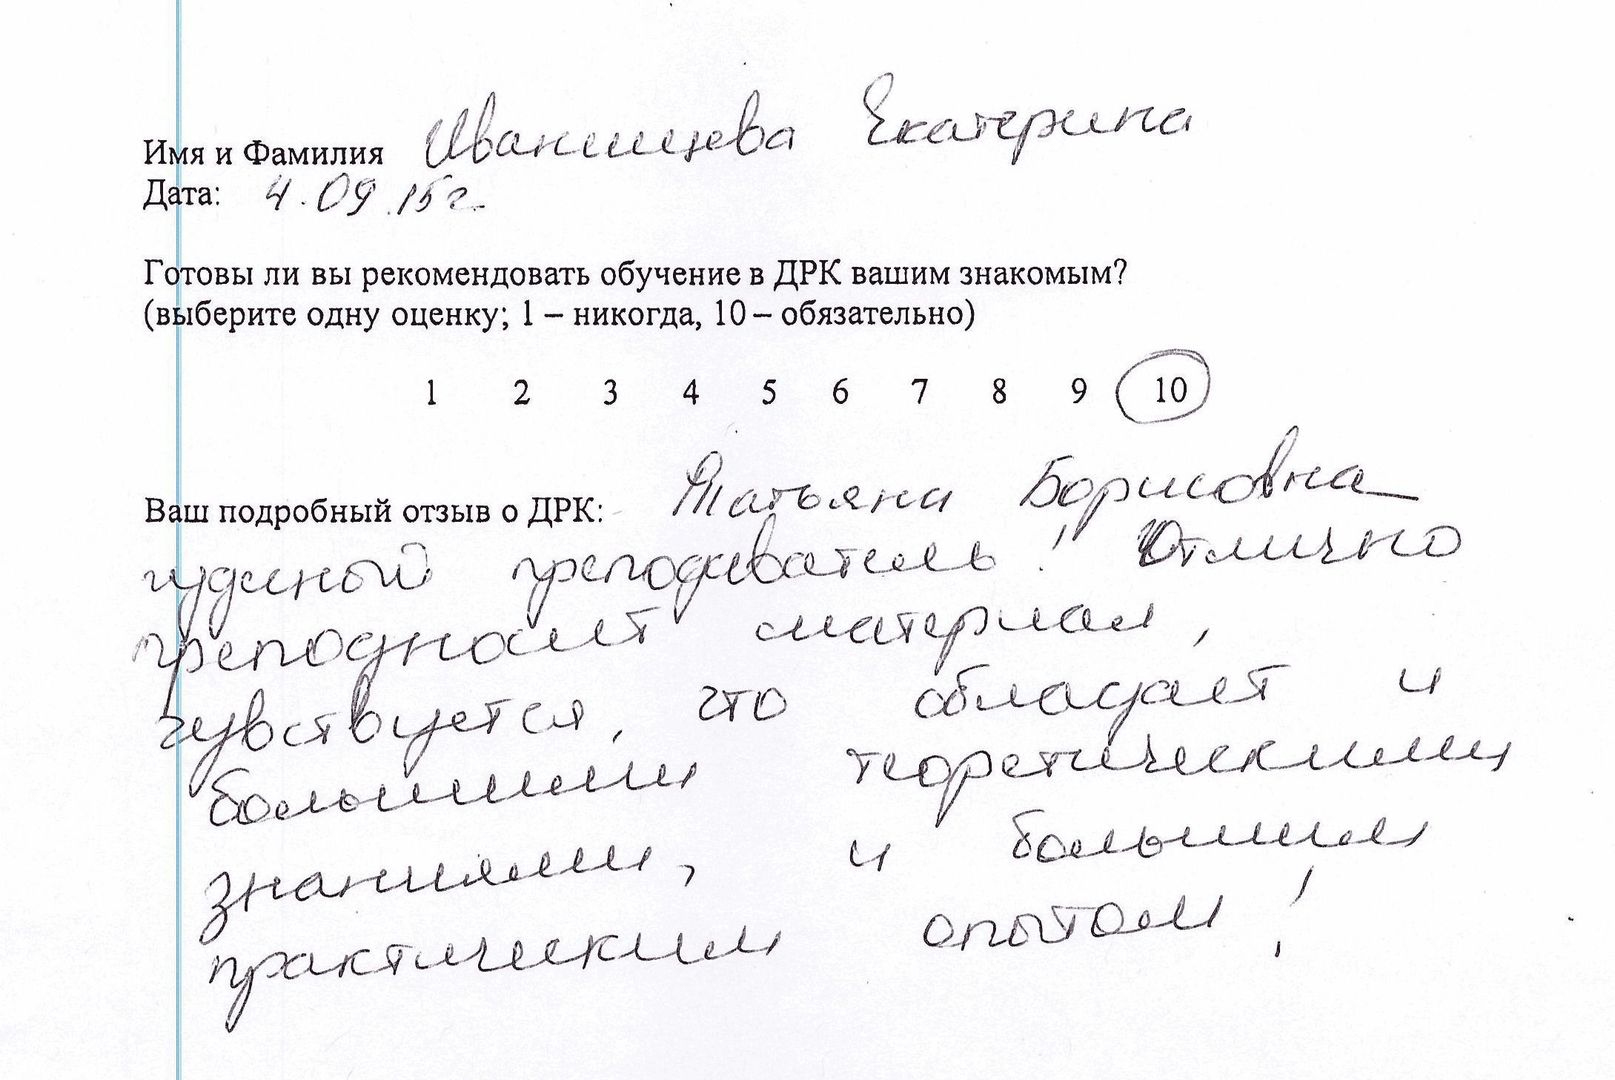 Имя и Фамилия Иванищева Екатерина
Дата: 4.09.15г.
Готовы ли вы рекомендовать обучение в ДРК вашим знакомым?
(выберите одну оценку; 1 – никогда, 10 – обязательно)
1 2 3 4 5 6 7 8 9 10
Ваш подробный отзыв о ДРК: Татьяна Борисовна
чудный преподаватель! Отлично
преподносит материал,
чувствуется, что обладает и
большими теоретическими
знаниями, и большим
практическим опытом!